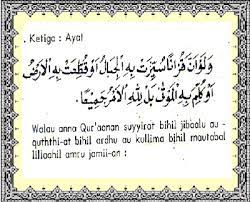 . Ketiga : Ayat
وَلَوْ اَنَّ قُرْاٰنًا سُيِّرَتْ بِهِ الْجِبَالُ اَوْ قُطِّعَتْ بِهِ الْاَرْضُ
اَوْ كُلِّمَ بِهِ الْمَوْتٰى بَلْ لِلّٰهِ الْاَمْرُ جَمِيْعًا.
Walau anna Qur'aanan suyyirot bihil jibaalu au -
quththi-at bihil ardhu au kullima bihil mautabal
lillaahil amru jamii-an :